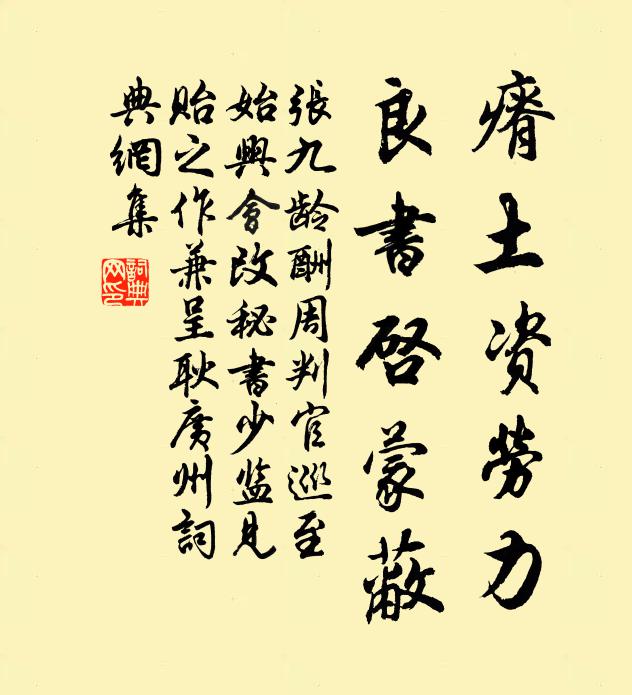 瘠土资勞力
良書啓蒙蔽
張九龄酬周判官巡至
始興會改秘書少监見
贻之作兼呈耿廣州詞
典網集
詞典網印